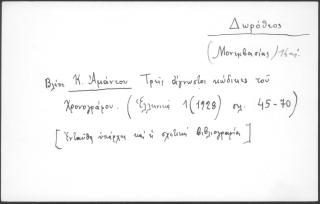 Δωρόθεος
(Μονεμβασίας) 16 αἰ.
Βλέπε Κ. Ἀμάντου Τρεῖς ἄγνωστοι κώδικες τοῦ
Χρονογράφου. (Ἑλληνικά 1 (1928) σελ. 45-70)
[Ἐνταῦθα ὑπάρχει καί ἡ σχετική βιβλιογραφία]